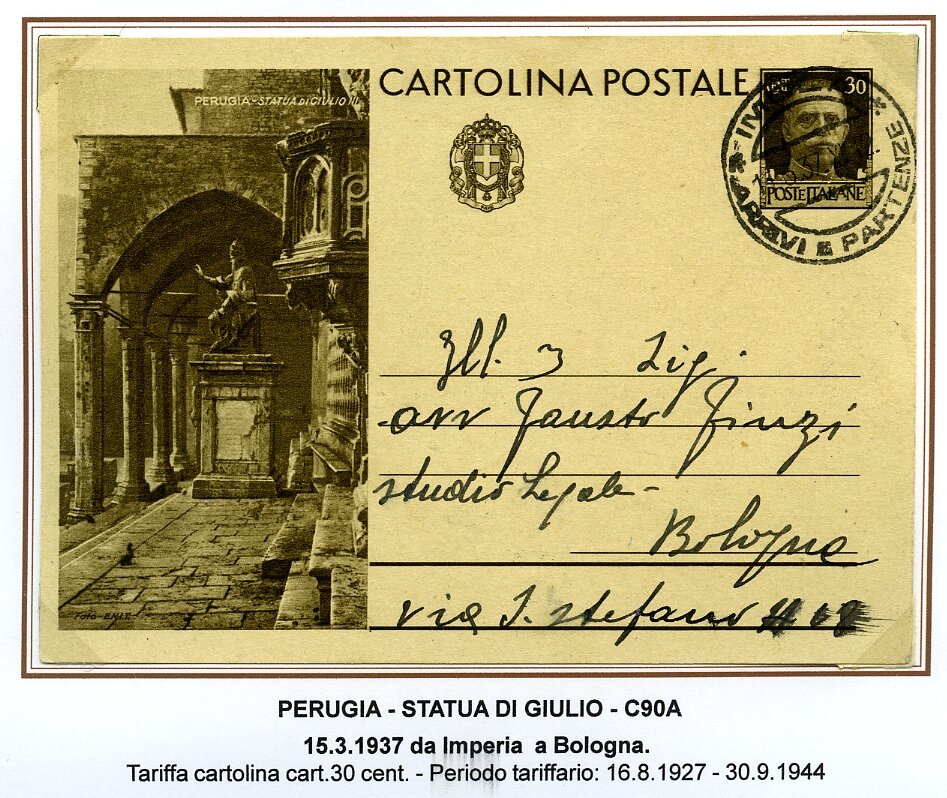 PERUGIA - STATUA DI GIULIO III
CARTOLINA POSTALE
30
POSTE ITALIANE
ARRIVI E PARTENZE
Ill. Sig.
avv Fausto Finzi
studio Legale -
Bologna
via S. Stefano 68
FOTO - E.N.I.T.
PERUGIA - STATUA DI GIULIO - C90A
15.3.1937 da Imperia a Bologna.
Tariffa cartolina cart.30 cent. - Periodo tariffario: 16.8.1927 - 30.9.1944